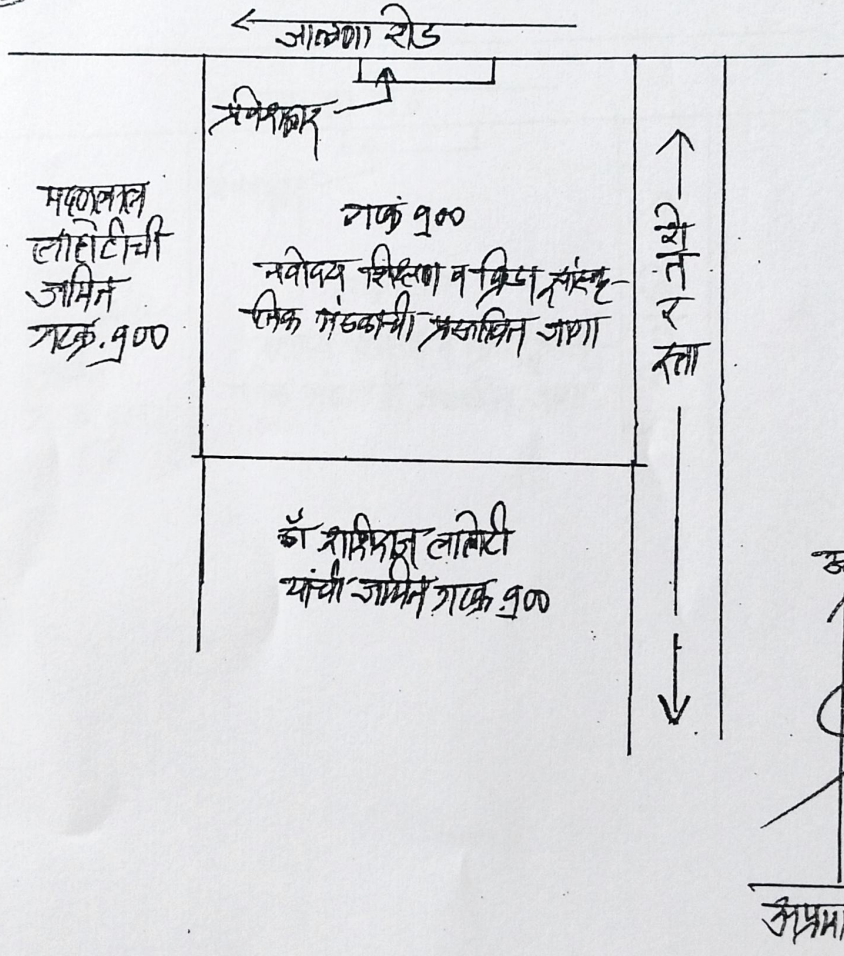 जालना रोड
प्रवेशद्वार
मदनलाल
लाहोटीची
जमिन
गटक्र.१००
गटक्रं १००
नवोदय शिक्षण व क्रिडा सांस्कृ-
तिक मंडळाची प्रस्तावित जागा
शे
त
र
स्ता
डॉ लाहोटी
यांची जमिन गटक्र.१००